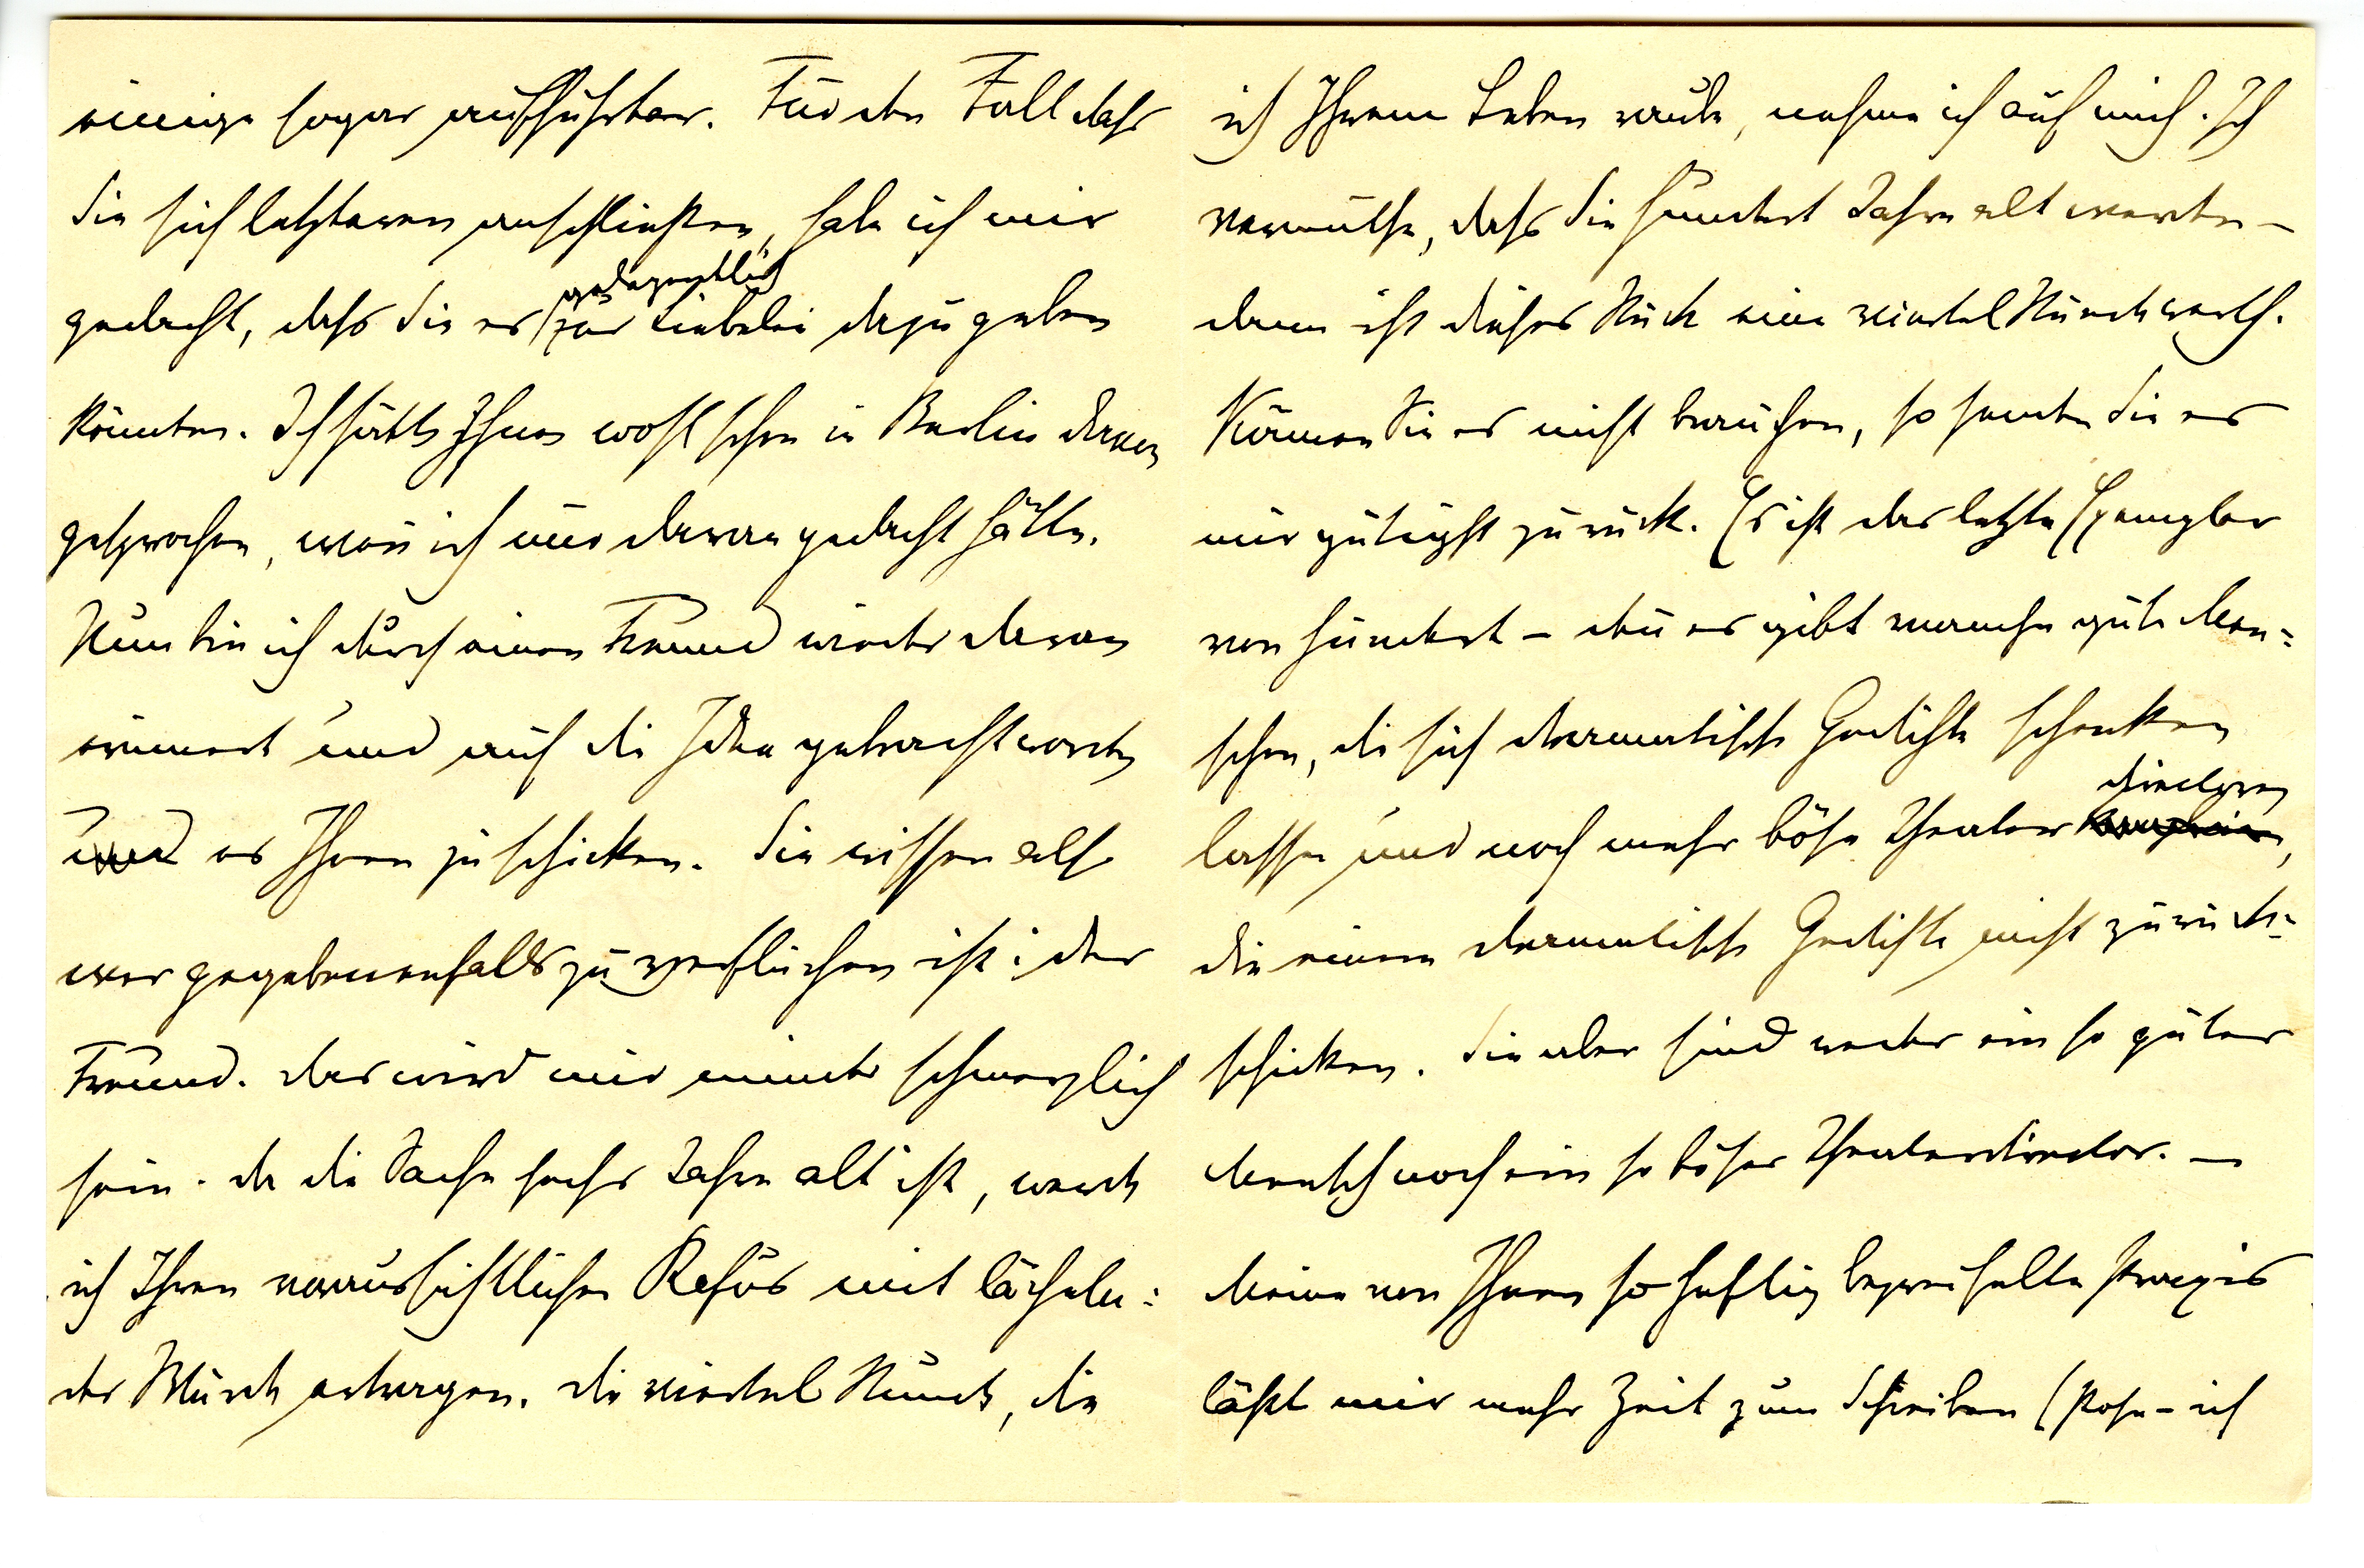 einige sogar aufführbar. Für den Fall dass
Sie sich letzteren anschließen, habe ich mir
gedacht, dass Sie es gelegentlich zur Liebelei dazu geben
könnten. Ich hätts Ihnen wohl schon in Berlin davon
gesprochen, wen̄ ich nur daran gedacht hätte.
Nun bin ich durch einen Freund wieder daran
erinnert und auf die Idee gebracht worden
und es Ihnen zu schicken. Sie wissen also
wer gegebenenfalls zu verfluchen ist: der
Freund. Das wird mir minder schmerzlich
sein. Da die Sache sechs Jahre alt ist, werde
ich Ihren voraussichtlichen Refus mit lächeln=
der Würde ertragen. Die viertel Stunde, die
ich Ihrem Leben raube, nehme ich auf mich. Ich
vermuthe, dass Sie hundert Jahre alt werden –
dann ist dieses Stück eine viertel Stunde werth.
Können Sie es nicht brauchen, so senden Sie es
mir gütigst zurück. Es ist das letzte Exemplar
von hundert – den̄ es gibt manche gute Men=
schen, die sich dramatische Gedichte schenken
lassen und noch mehr böse Theaterdirectoren,
die einem dramatische Gedichte nicht zurück=
schicken. Sie aber sind weder ein so guter
Mensch noch ein so böser Theaterdirector. –
Meine von Ihnen so heftig bezweifelte Praxis
läßt mir mehr Zeit zum Schreiben (Pose – ich